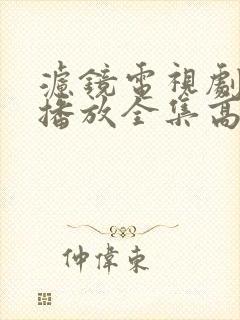 濾鏡電視劇
播放全集高
仲偉東